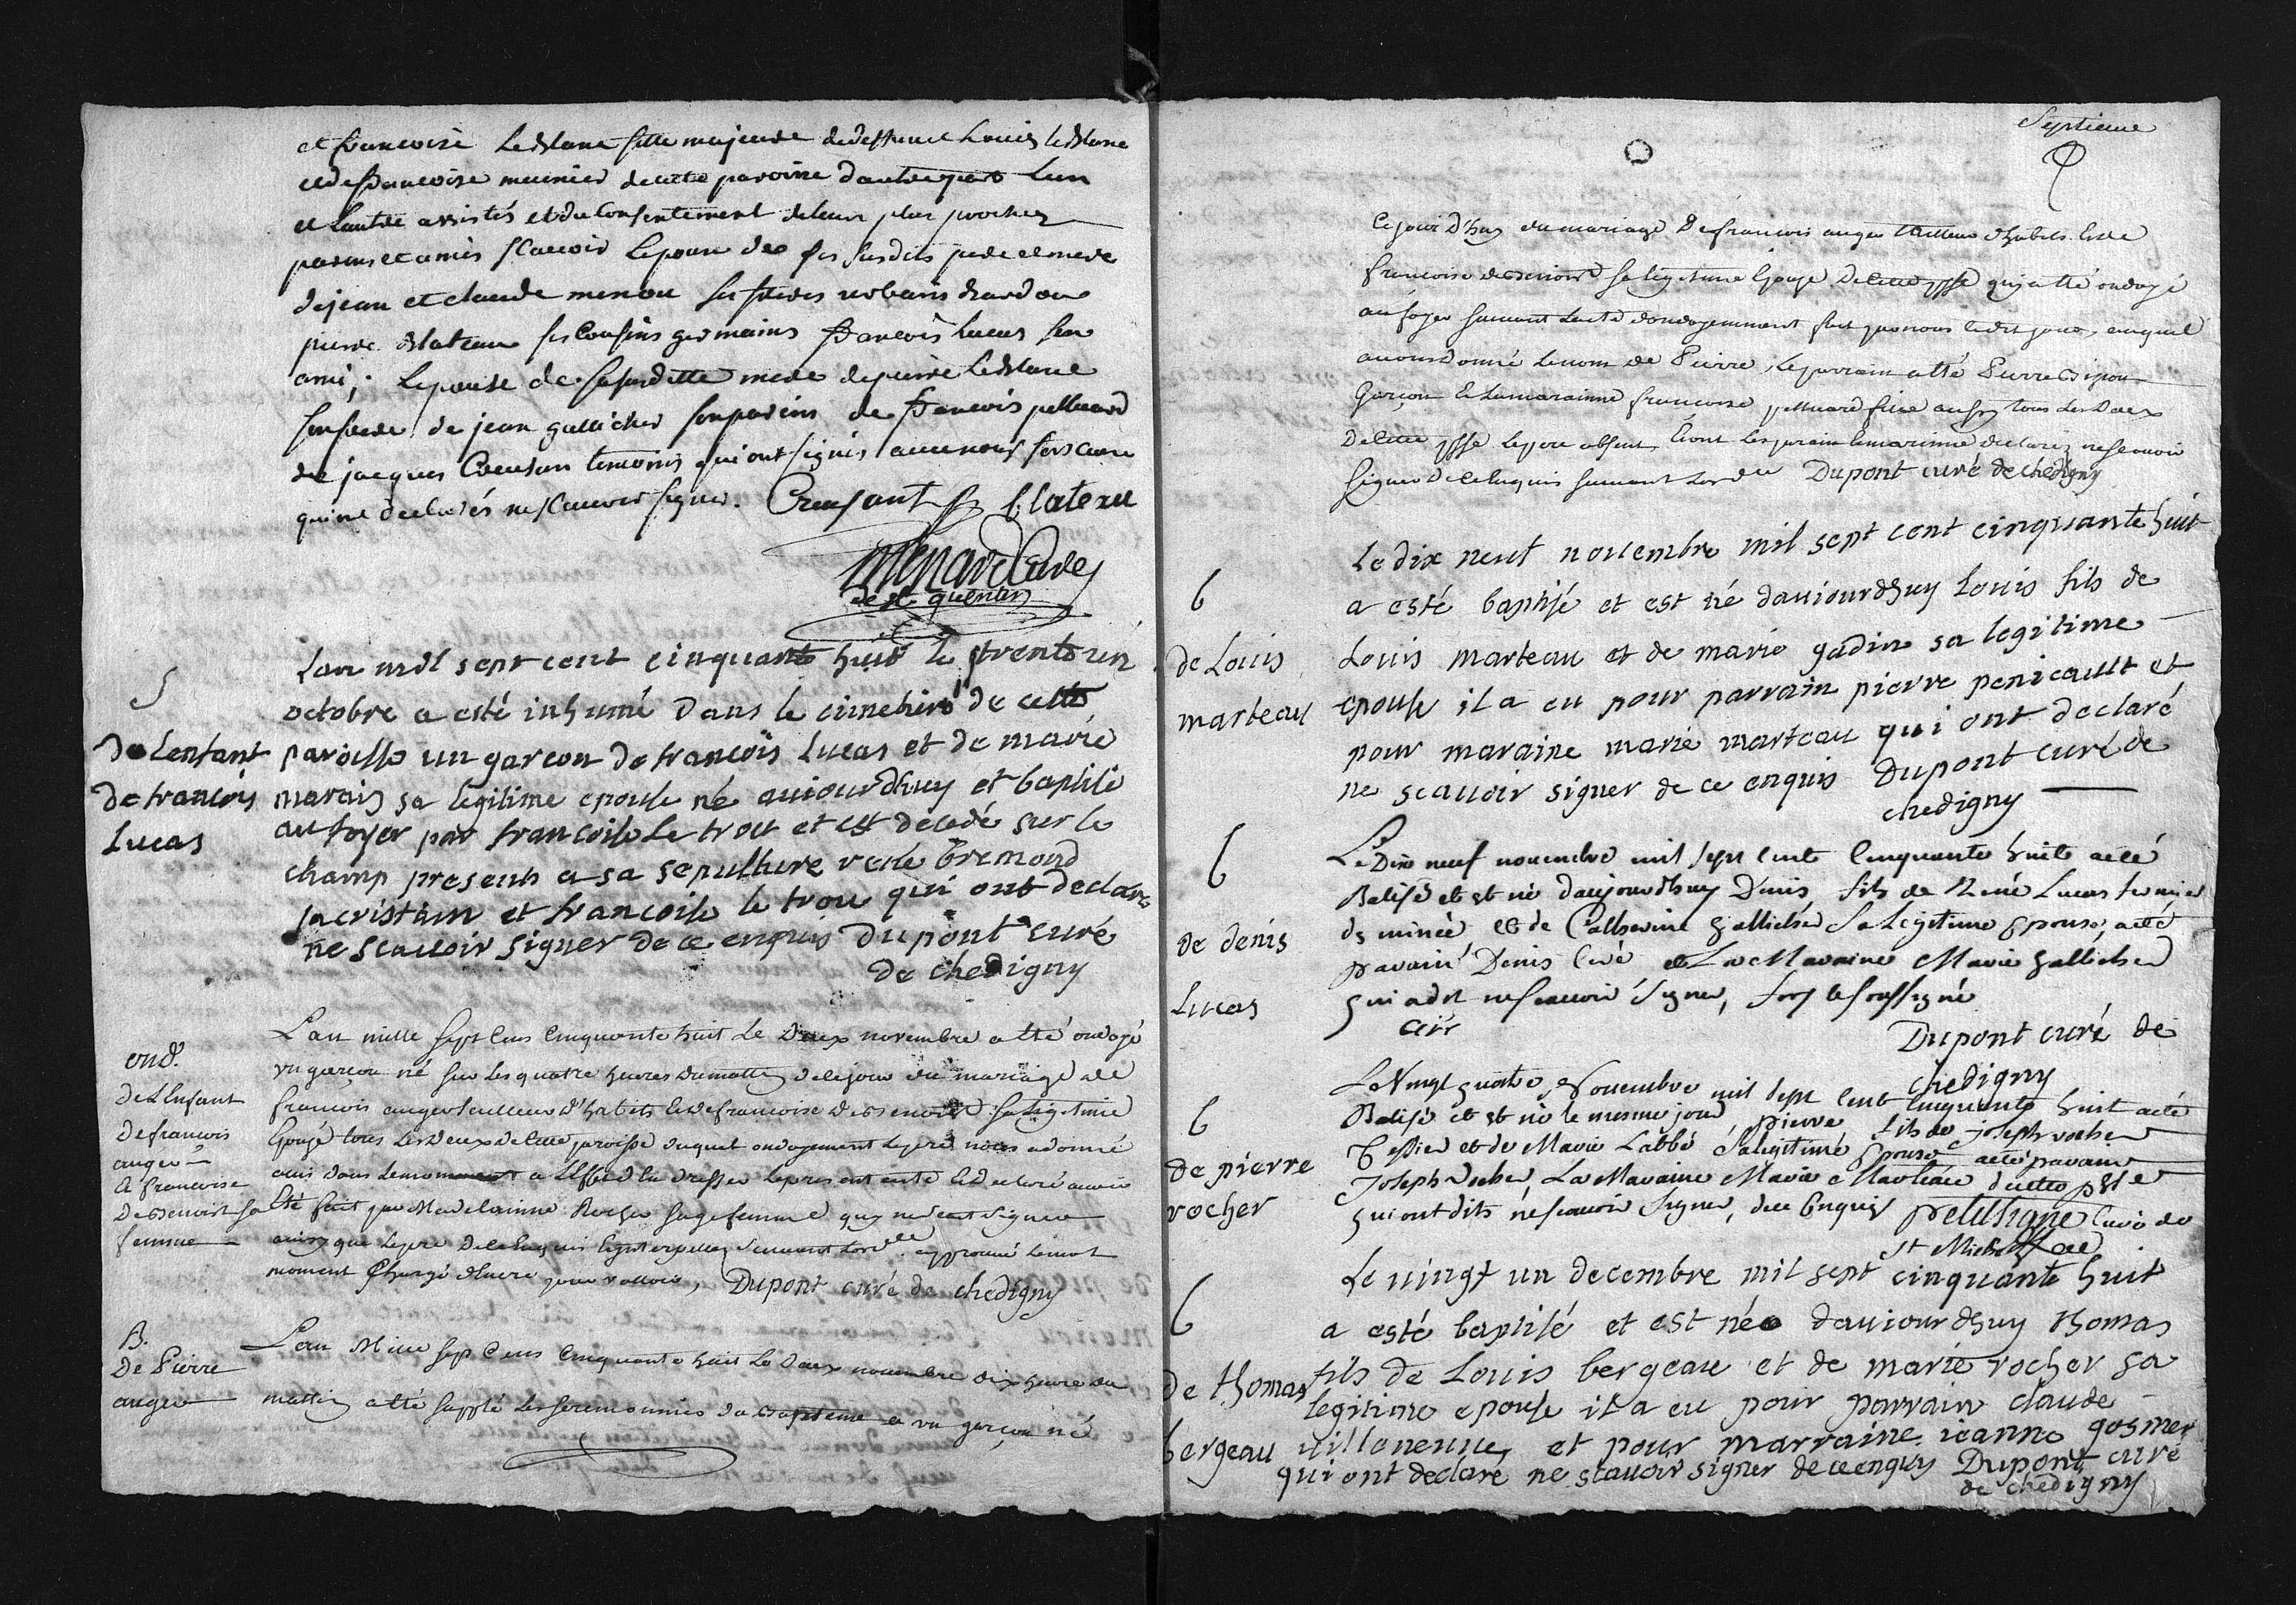 et francoise Leblanc fille majeure de deffunct Louis leblanc
et de francoise meunier de cette paroisse d'autre part Lun
et Lautre assistés et du Consentement de leurs plus proches
parens et amis scauoir Lepoux de ses susdits pere et mere
de jean et claude menou ses freres urbain
pierre blateau ses Cousins germains francois Lucas son
ami; Lepouse de sa susditte mere de pierre Leblanc
son frere de jean gallicher son parein de francois pelluard
de jacques Creusan temoins qui ont signés auec nous fors ceux
qui ont declarés ne scauoir signer. Creusant blateau
Menard Curé
de st quentin
S
Lan mil sept cent cinquante huit le trente un
octobre a esté inhumé dans le cimetiere de cette
de Lenfant
de francois
Lucas
paroisse un garcon de francois Lucas et de marie
marais sa legitime epouse né auiourdhuy et baptisé
au foyer par francoise Le trou et est decedé sur le
champ presents a sa sepulture rené bremond
sacristain et francoise le trou qui ont declaré
ne scauoir signer de ce enquis Dupont curé
de chedigny
ond.
De Lenfant
de francois
auger
& francoise
Desbenoist sa
femme
Lan mille sept Cens Cinquante huit Le Deux novembre a Eté ondoyé
un garcon né sur Les quatre heures du mattin de ce jour du mariage de
francois auger tailleur d'habits et de francoise Desbenoist sa Legitime
Epouse tous Les deux de cette paroisse duquel ondoyement Le pere nous a donné
auis dans Le moment a Leffet den dresser Le present acte et declaré auoir
Eté fait par Madelainne Rocher sagefemme qui ne scait signer
ainsy que Le pere De ce Enquis suivant Lord.ce approuvé Le mot
moment Chargé d'encre pour valloir, Dupont curé de chedigny
B.
De Pierre
auger
Lan Mille sept Cens Cinquante huit Le Deux novembre dix heure du
mattin a Eté supplé Les seremonnies du Baptéme a un garcon né
Septieme
Ce jour D'huy du mariage De francois auger tailleur d'habits et de
francoise desbenoist sa Legitime Epouse De cette psse qui a Eté ondoyé
au foyer suivant Lacte dondoyemment fait par nous ledit jour, auquel
avons donné Le nom de Pierre, Le parrain a Eté Pierre
Garcon Et La marainne francoise pelluard fille aussy tous Les Deux
De cette psse Le pere absent, Et ont Les parain & marinne declarez ne scauoir
Signer De ce Enquis suivant Lord.ce Dupont curé de chedigny
b
de Louis
marteau
Le dix neuf nouembre mil sept cent cinquante huit
a esté baptisé et est né dauiourdhuy Louis fils de
Louis marteau et de marie gadin sa legitime
epouse il a eu pour parrain pierre penicault et
pour maraine marie marteau qui ont declaré
ne scauoir signer de ce enquis Dupont curé de
chedigny
b
de denis
Lucas
Le Dix neuf nouembre mil sept cent Cinquante huit a eté
Batisé et est né daujourdhuy Denis fils de René Lucas fermier
de mincé et de Catherine Gallicher Sa Legitime Epouse, a eté
parain Denis Civé et La Maraine Marie Gallicher
qui a dit ne scauoir Signer, fors le soussigné
Civé
Dupont curé de
chedigny
b
de pierre
rocher
Le Vingt quatre Nouembre mil sept cent cinquante huit a eté
Batisé et est né le mesme jour pierre fils de joseph rocher
Tessier et de Marie Labbé Sa legitime Epouse a eté parain
Joseph Rocher La Maraine Marie Marteau de cette psse
qui ont dits ne scauoir Signer, de ce Enquis petithomme Curé de
St Michel
b
de thomas
bergeau
Le uingt un decembre mil sept cinquante huit
a esté baptisé et est né dauiourdhuy thomas
fils de Louis bergeau et de marie rocher sa
legitime epouse il a eu pour parrain claude
uilleneuue et pour marraine ieanne gosmer
qui ont declaré ne scauoir signer de ce enquis Dupont curé
de chedigny